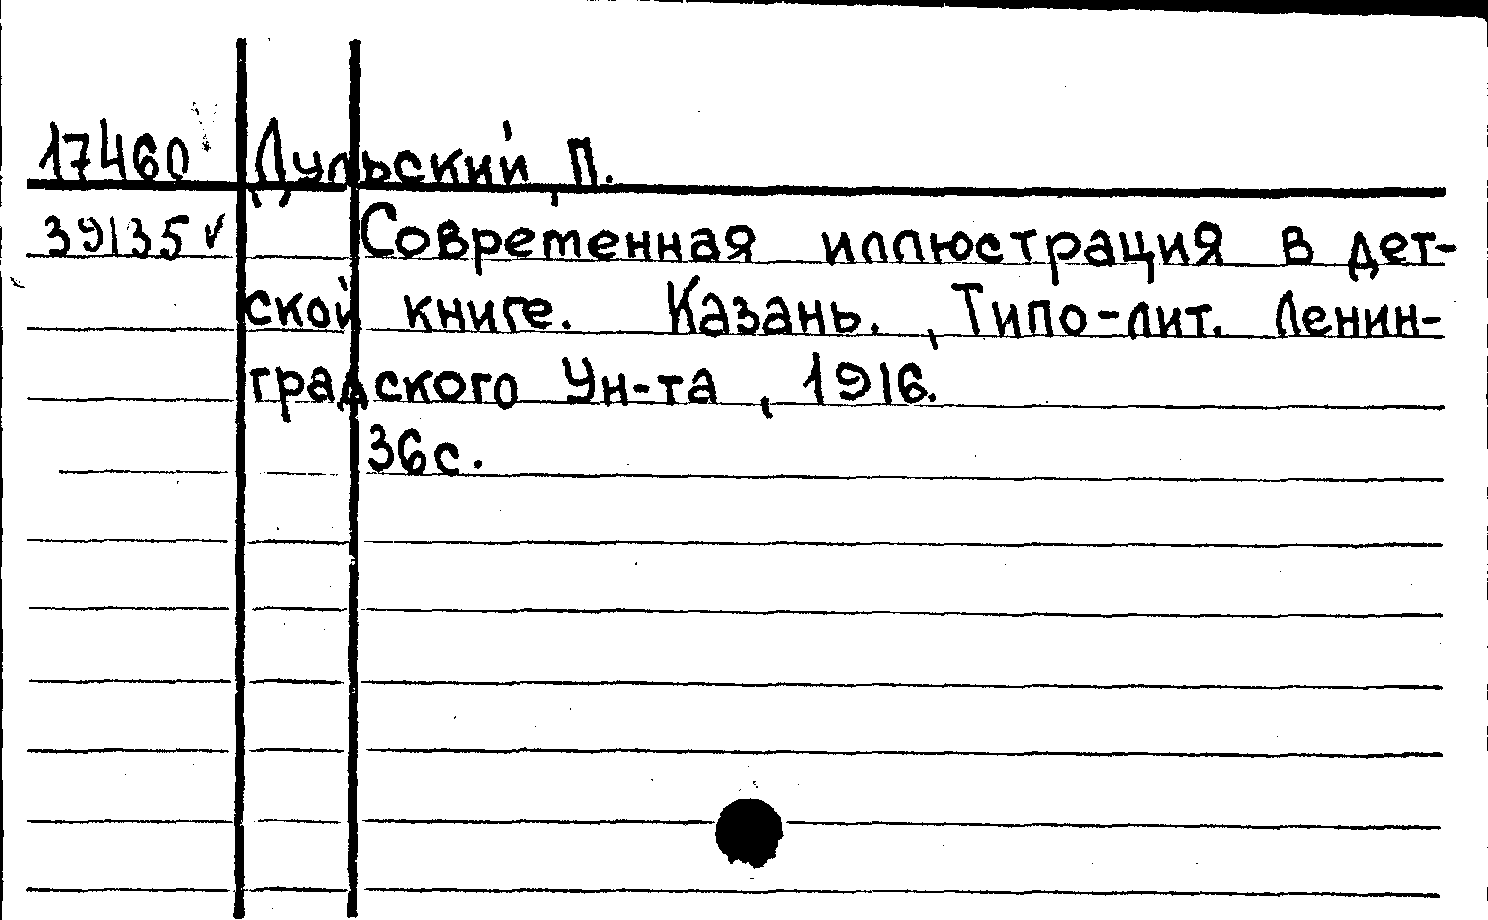 17460 Дульский, П.
39135 ✓ Современная иллюстрация в дет-
ской книге. Казань., Типо-лит. Ленин-
градского Ун-та, 1916.
36с.